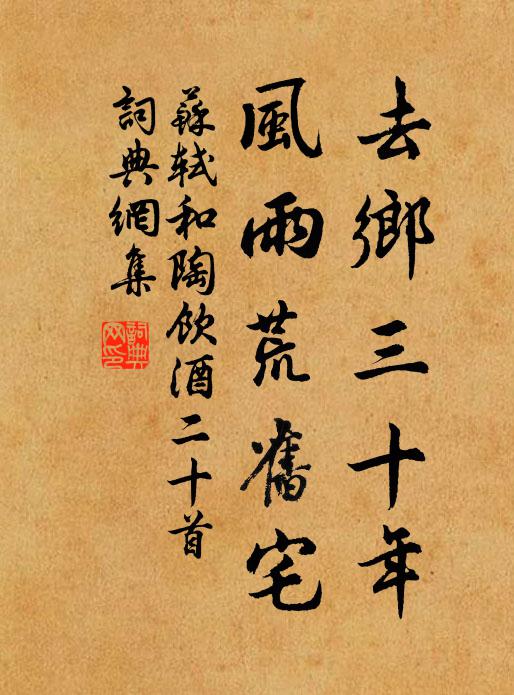 去鄉三十年
風雨荒舊宅
蘇軾和陶飲酒二十首
詞典網集
詞典網印